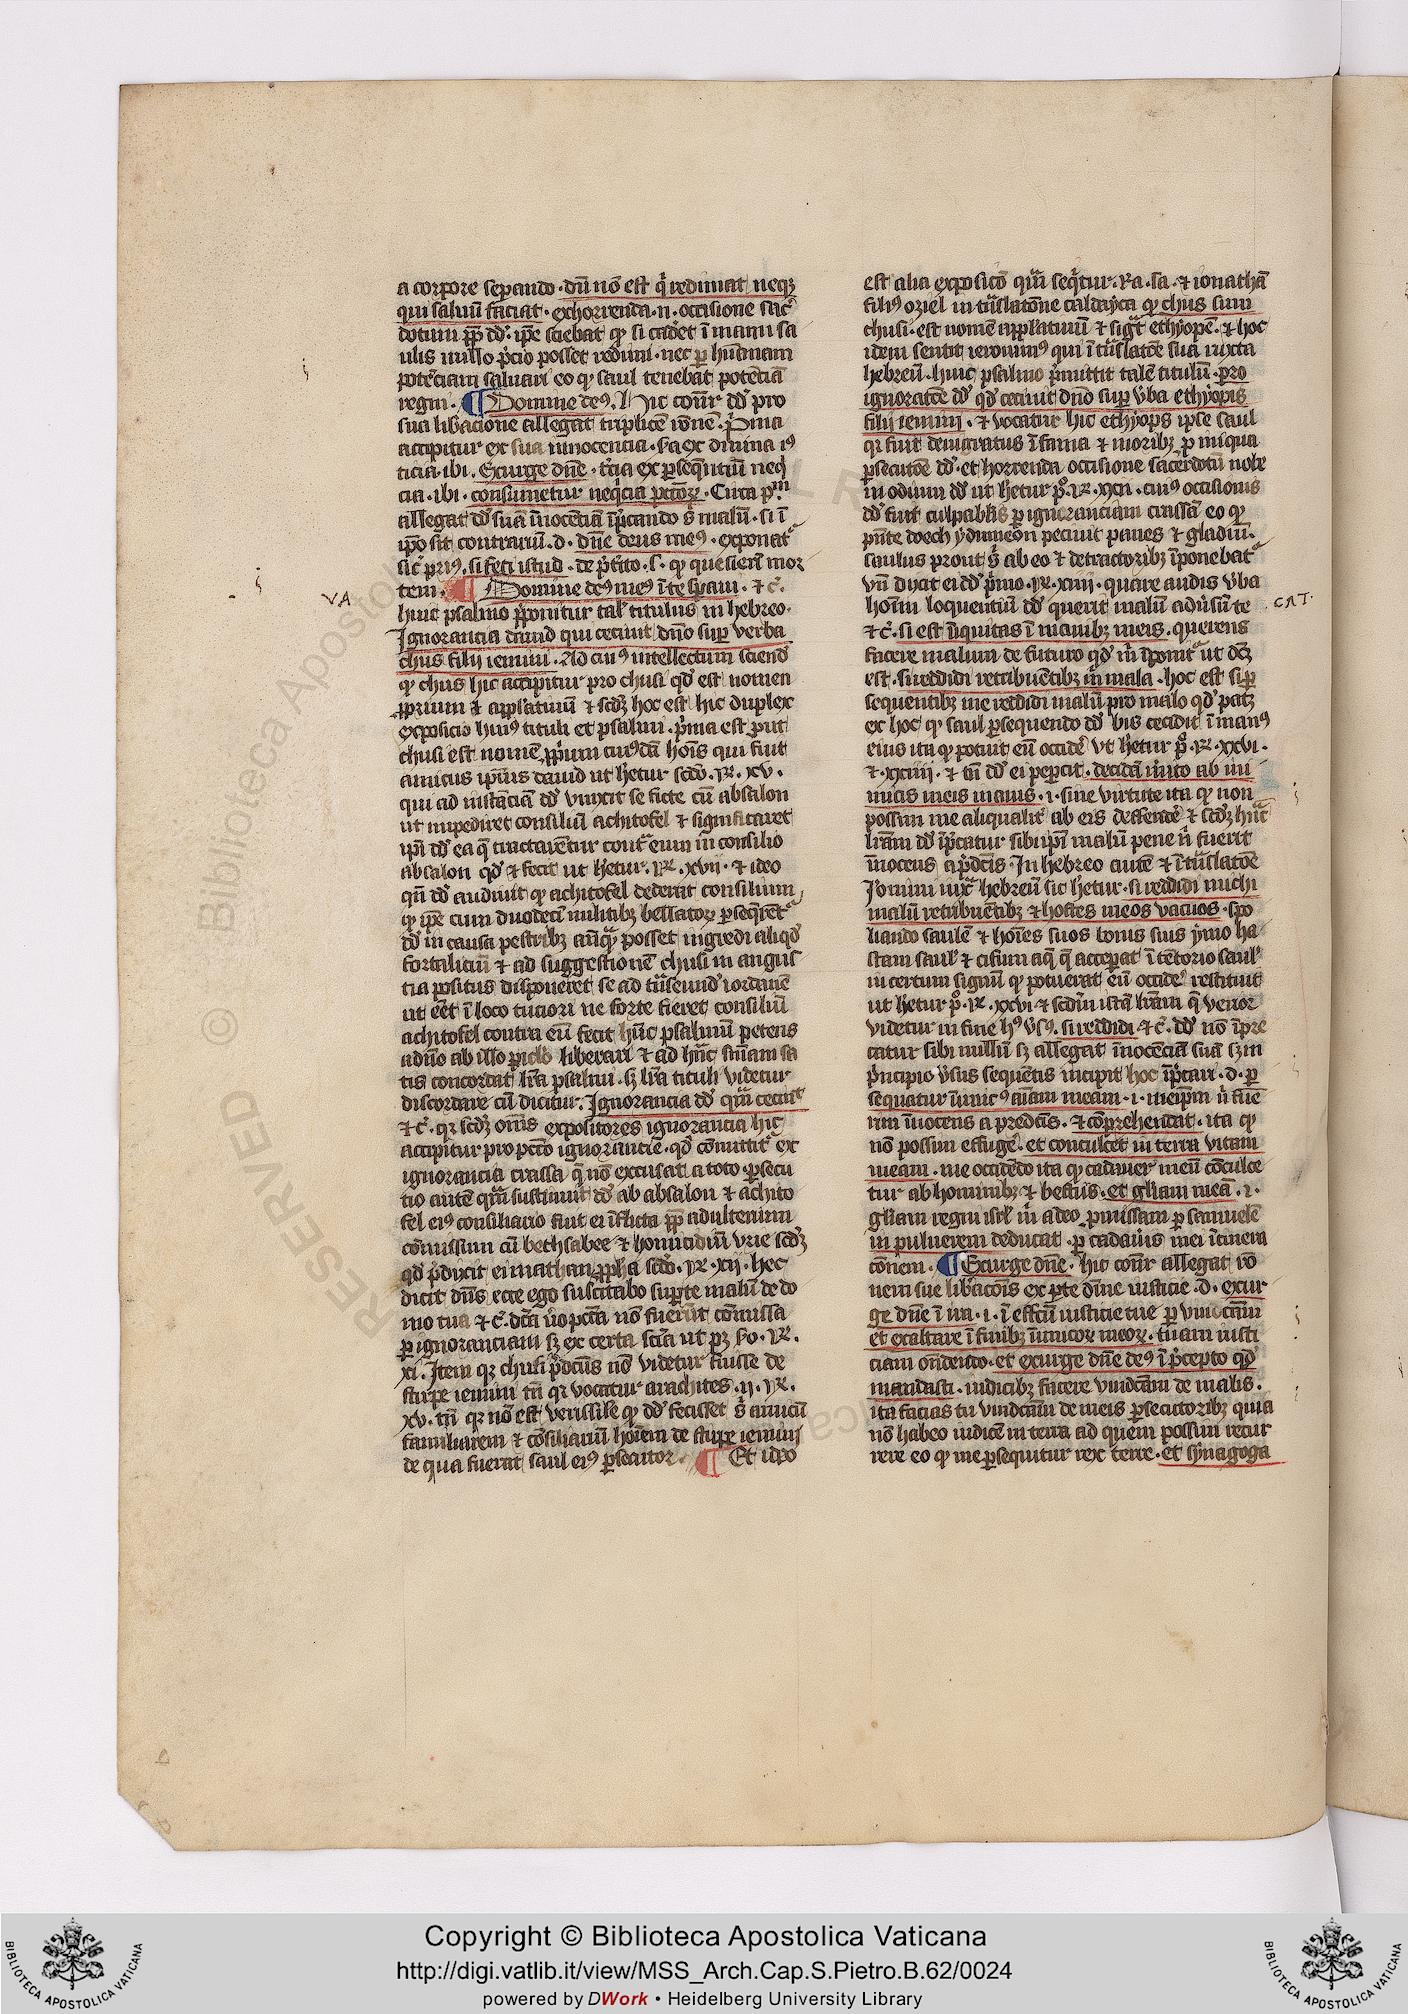 a corpore sepando · dū nō est q̇ redimat neqꝫ
qui saluū faciat · exhorrenda · n · occisione sac̓
dotum ꝓp̄ dd̓ · ip̄e sciebat qꝙ si cad̓et ī manu sa
ulis nullo p̓cio posset redimi · nec ꝑ humanam
potēciam saluari eo qꝙ saul tenebat potēciā
regni · ¶ Domine de⁹ · Hic cōn̄r dd̓ pro
sua libacione allegat triplicē rōnē · p̓ma
accipitur ex sua innocencia · s̄a ex diuina i⁹
ticia · ibi · Exurge dn̄e · t̓cia ex ꝑsequētiū neq̇
cia · ibi · consumetur neq̇cia pctōꝝ · Circa pᵐ
allegat dd̓ suā īnocēciā īp̓cando s̄ malū · si ī
ip̄o sit contrariū · d · dn̄e deus me⁹ · exponat᷑
sic̓ pri⁹ · si feci istud · de p̓tito · s · qꝙ quesierī mor
tem · ¶ Domine de⁹ me⁹ ī te sꝑaui · ⁊ c̓ ·
VA
huic psalmo p̄ponitur tal̓ titulus in hebreo ·
Ignorancia dauid qui cecinit dn̄o suꝑ verba
chus filij iemini · Ad cui⁹ intellectum sciend̓
qꝙ chus hic accipitur pro chusi qd̓ est nomen
ꝓprium ⁊ appl̓atiuū ⁊ scdꝫ hoc est hic duplex
exposicio hui⁹ tituli et psalmi · p̓ma est ꝓut
chusi est nomē ꝓpriū cui⁹dā hoīs qui fuit
amicus ip̄ius dauid ut h̓etur scd̓o · ꝶ · xv ·
qui ad instāciā dd̓ vnixit se ficte cū absalon
ut impediret consiliū achitofel ⁊ significaret
ip̄i dd̓ ea q̄ tractarētur contᵃ eum in consilio
absalon qd̓ ⁊ fecit ut h̓etur · ꝶ · xvij · ⁊ ideo
qn̄ dd̓ audiuit qꝙ achitofel dederat consilium
qꝙ ip̄e cum duodecī militibꝫ bellatoꝝ ꝑseq̄ret᷑
dd̓ in causa pestribꝫ anq̄ꝫ posset ingredi aliqd̓
fortaliciū ⁊ ad suggestionē chusi in angus
tia positus disponeret se ad trāseund̓ iordanē
ut eēt ī loco tuciori ne forte fieret consiliū
achitofel contra eū fecit hūc psalmū petens
a dn̄o ab illo pic̓lo liberari ⁊ ad hūc sn̄iam sa
tis concordat lr̄a psalmi · sꝫ lr̄a tituli videtur
discordare cū dicitur · Ignorancia dd̓ quā cecinit
⁊ c̓ · qꝫ scdꝫ om̄s expositores ignorancia hic
accipitur pro pctō ignorancie · qd̓ cōmittit᷑ ex
ignorancia crassa q̄ nō excusat a toto · ꝑsecu
tio autē quā sustinuit dd̓ ab absalon ⁊ achito
fel ei⁹ consiliario fuit ei īflicta ꝓp̄ adulterium
cōmissum cū bethsabee ⁊ homicidiū vrie scdꝫ
qd̓ p̓dixit ei nathan ꝓpha scd̓o · ꝶ · xij · Hec
dicit dn̄s ecce ego suscitabo suꝑ te malū de do
mo tua ⁊ c̓ · dc̄a v̓o pctā nō fuerūt cōmissa
ꝑ ignoranciam sꝫ ex certa sciā ut pꝫ s̄o · ꝶ ·
xi · Item qꝫ chusi p̓dictus nō videtur fuisse de
stirpe iemini tn̄ qꝛ vocatur arachites · ij · ꝶ ·
xv · tn̄ qꝫ nō est verissile qꝙ dd̓ fecisset s̄ amicū
familiarem ⁊ cōsiliariū hoīem de stirpe iemini
de qua fuerat saul ei⁹ ꝑsecutor · ¶ Et ideo
est alia exposicō quā seq̇tur · Ra · sa · ⁊ ionathā
fili⁹ oziel in trāslatōne caldayca qꝙ chus siue
chusi · est nomē appl̓atiuū ⁊ sigᵗ ethyopē · ⁊ hoc
idem sentit ieronim⁹ qui ī trāslatōe sua iuxta
hebreū · huic psalmo p̓mittit talē titulū · pro
ignoratōe dd̓ qd̓ cecinit dn̄o suꝑ v̓ba ethyopis
filij iemini · ⁊ vocatur hic ethyops ipse saul
qꝛ fuit denigratus ī fama ⁊ moribꝫ ꝑ iniqua
ꝑsecutōe dd̓ · et horrenda occisione sacerdotū nobe
in odium dd̓ ut h̓etur p̊ · ꝶ · xxii · cui⁹ occisionis
dd̓ fuit culpabilis ꝑ ignoranciam crassā eo qꝙ
pn̄te doech ydumeōn peciuit panes ⁊ gladiū ·
saulus prout s̄ ab eo ⁊ detractoribꝫ īponebat᷑
vn̄ dixit ei dd̓ p̓mo · ꝶ · xxiiii · quare audis v̓ba
hoīm loquentiū dd̓ querit malū adu̓sū te
CAT ·
⁊ c̓ · si est īiquitas ī manibꝫ meis · querens
facere malum de futuro qd̓ m̓ īponit᷑ ut dcꝫ
est · si reddidi retribuētibꝫ m̓ mala · hoc est siꝑ
sequentibꝫ me reddidi malū pro malo qd̓ patꝫ
ex hoc qꝙ saul ꝑsequendo dd̓ bis cecidit ī man⁹
eius ita qꝙ potuit eū occid̓e vt h̓etur p̊ · ꝶ · xxvi ·
⁊ · xxiiii · ⁊ tn̄ dd̓ ei peꝑcit · decidā m̓ito ab ini
micis meis inanis · i · sine virtute ita qꝙ non
possim me aliqualit̓ ab eis deffend̓e ⁊ scdꝫ hāc
lr̄am dd̓ īp̓catur sibi ip̄i malū pene n̓ fuerit
īnocens a p̓dc̄is · In hebreo autē ⁊ ī trāslatōe
Jeronimi iuxᵃ hebreū sic h̓etur · si reddidi michi
malū retribuētibꝫ ⁊ hostes meos vacuos · spo
liando saulē ⁊ hoīes suos bonis suis ymo ha
stam saul̓ ⁊ cifum aq̄ q̄ acceꝑat ī tētorio saul̓
in certum signū qꝙ potuerat eū occid̓e restituit
ut h̓etur p̊ · ꝶ · xxvi ⁊ scdm̄ istā lr̄am q̄ verior
videtur in fine h⁹ v̓s⁹ · si reddidi ⁊ c̓ · dd̓ nō īpre
catur sibi nullū sꝫ allegat īnocēciā suā sꝫ in
p̓ncipio v̓sus sequētis incipit hoc īp̓cari · d · ꝑ
sequatur īimic⁹ aīam meam · i · meip̄m n̓ fue
rim īnocens a predc̄is · ⁊ cōprehendat · ita qꝙ
nō possim effug̓e · et conculcet in terra vitam
meam · me occidēdo ita qꝙ cadauer meū cōculce
tur ab hominibꝫ ⁊ bestiis · et gl̄iam meā · i ·
gl̄iam regni isrl̓ m̓ a deo ꝓmissam ꝑ samuelē
in puluerem deducat · ꝑ cadau̓is mei īcinera
cōnem · ¶ Exurge dn̄e · hic cōn̄r allegat rō
nem sue lib̓acōis ex ꝑte diuīe iusticie · d · exur
ge dn̄e ī ira · i · ī effectū iusticie tue ꝑ vindictā
et exaltare ī finibꝫ īimicoꝝ meoꝝ · tuam iusti
ciam ondendo · et exurge dn̄e de⁹ ī p̓cepto qd̓
mandasti · iudicibꝫ facere vindictā de malis ·
ita facias tu vindictā de meis ꝑsecutoribꝫ quia
nō habeo iudicē in terra ad quem possim recur
rere eo qꝙ me ꝑsequitur rex terre · et synagoga
RESERVED © Biblioteca Apostolica Vaticana
BIBLIOTECA APOSTOLICA VATICANA
Copyright © Biblioteca Apostolica Vaticana
http://digi.vatlib.it/view/MSS_Arch.Cap.S.Pietro.B.62/0024
powered by DWork • Heidelberg University Library
BIBLIOTECA APOSTOLICA VATICANA